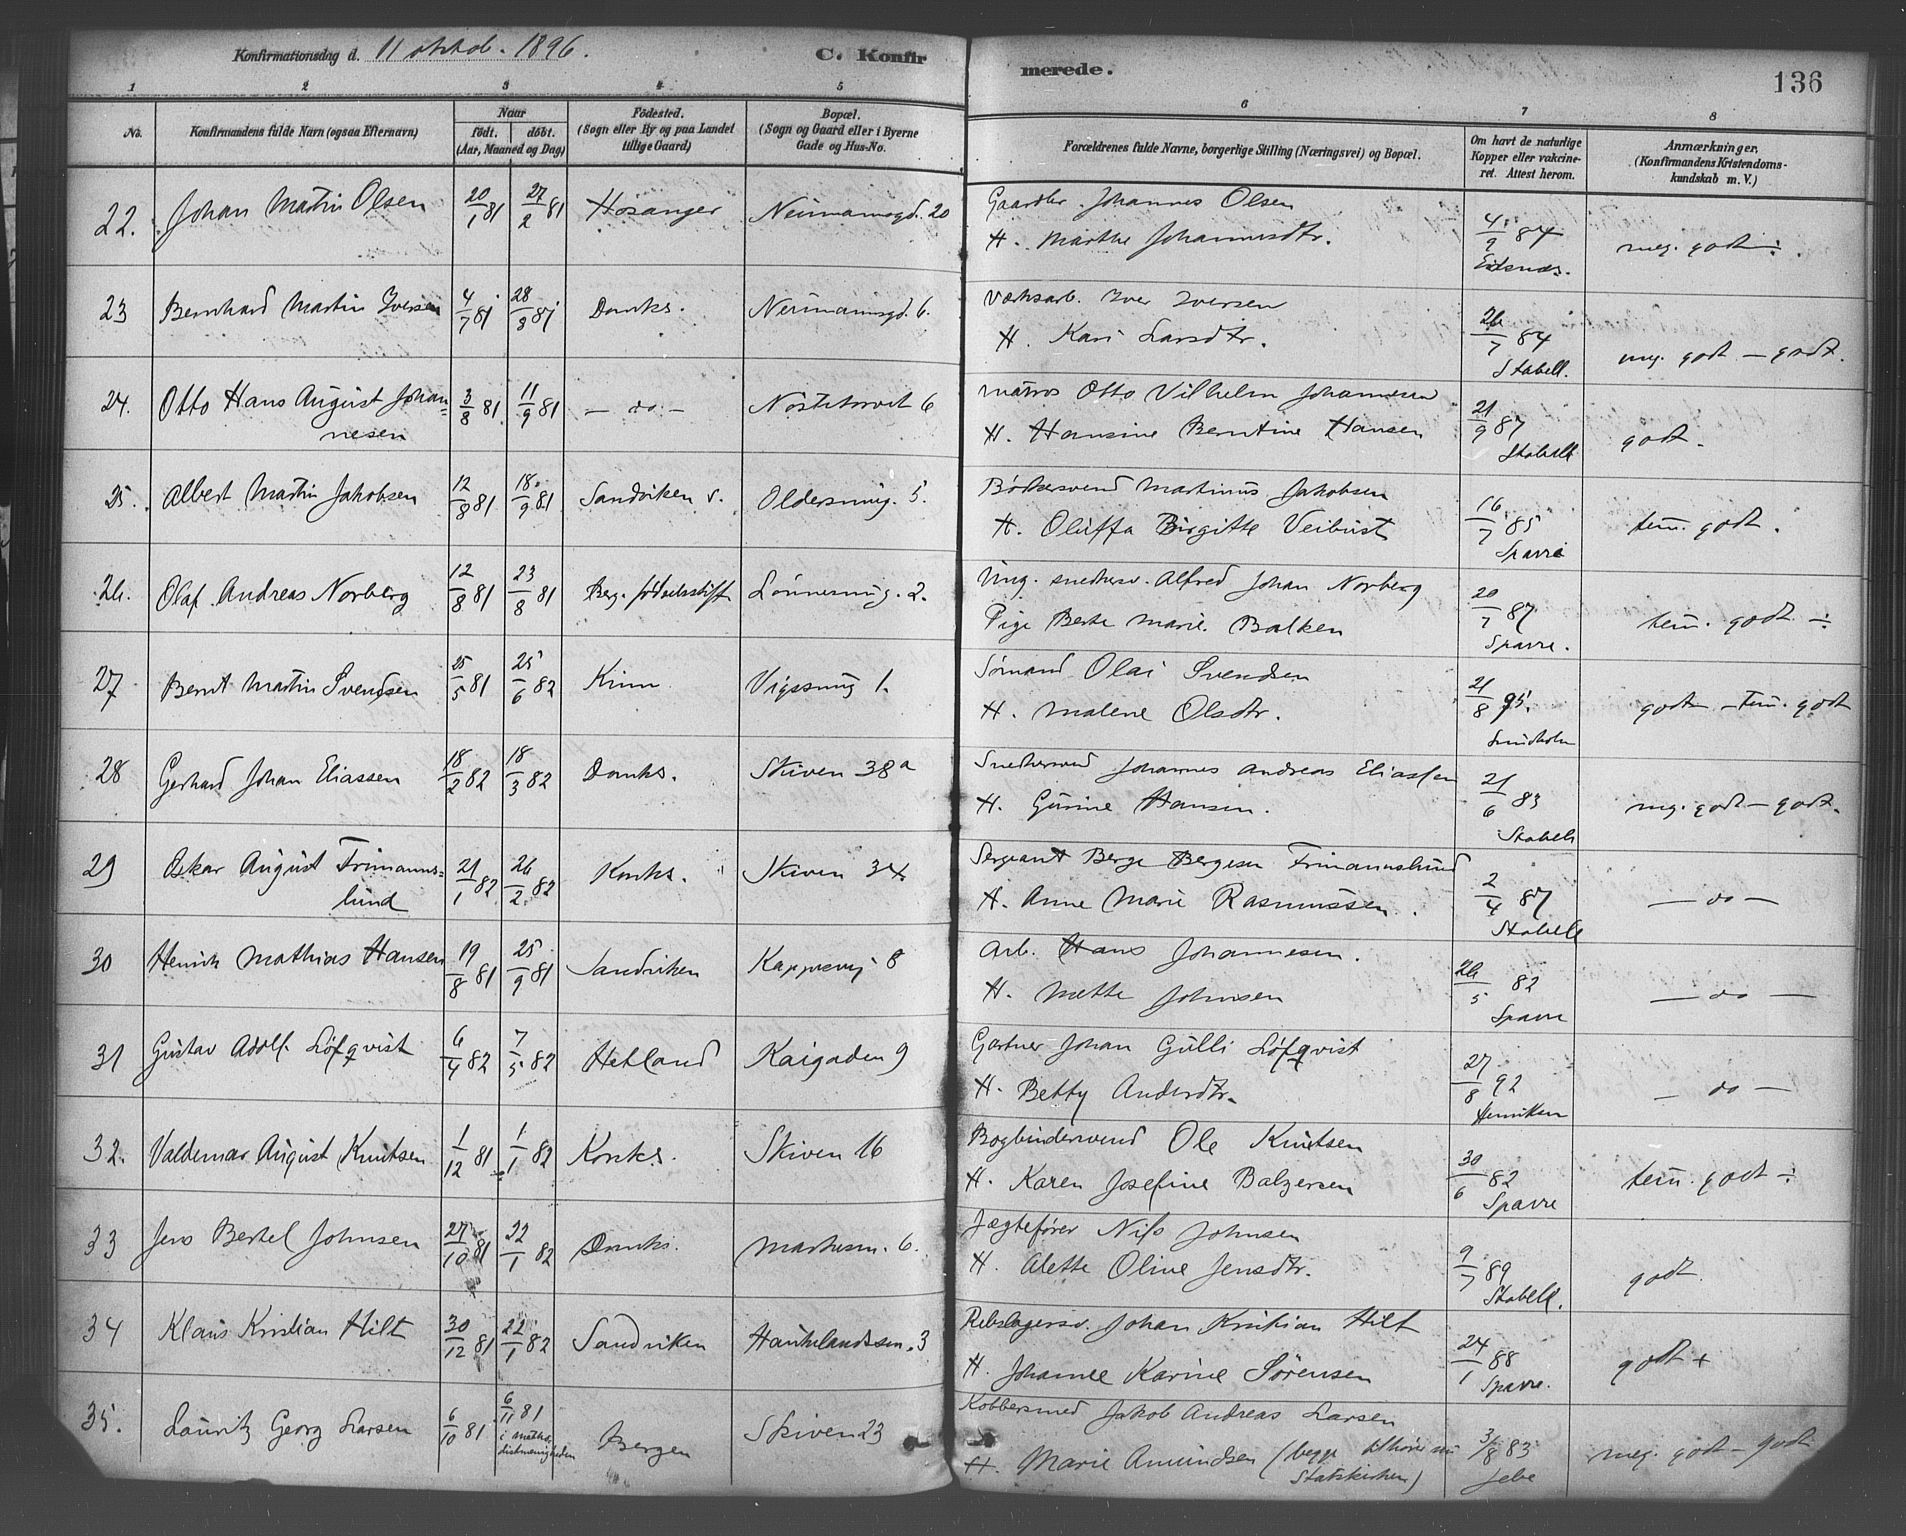 Konfirmationsdag d. 11 oktob. 1896.
C. Konfirmerede.
136
1 2 3 4 5 6 7 8
No.
Konfirmandens fulde Navn (ogsaa Efternavn)
Naar
født. døbt.
(Aar, Maaned og Dag)
Fødested.
(Sogn eller By og paa Landet
tillige Gaard)
Bopæl.
(Sogn og Gaard eller i Byerne
Gade og Hus-No.
Forældrenes fulde Navne, borgerlige Stilling (Næringsvei) og Bopæl.
Om havt de naturlige
Kopper eller vakcine-
ret. Attest herom.
Anmærkninger.
(Konfirmandens Kristendoms-
kundskab m. V.)
22. Johan Martin Olsen 20/1 81 27/2 81 Hosanger Neumannsgd. 20 Gaardbr. Johannes Olsen
H. Marthe Johannesdtr. 4/9 84 meg. godt ÷.
23 Bernhard Martin Iversen 4/7 81 28/8 81 Domks. Neumannsgd. 6. Værksarb. Iver Iversen
H. Kari Larsdtr. 26/7 84 Stabell. mg. godt – godt.
24. Otto Hans August Johan=
nesen 3/8 81 11/9 81 – do – Nøstetorvet 6 Matros Otto Vilhelm Johannesen
H. Hansine Berntine Hansen 21/9 87 Stabell godt.
25. Albert Martin Jakobsen 12/8 81 18/9 81 Sandviken s. Oldersmug. 5. Bødkersvend Martinus Jakobsen
H. Oluffa Birgitte Veibust 16/7 85 Sparre tem. godt.
26. Olaf Andreas Norberg 12/8 81 23/8 81 Berg. fødselsstift Lønnesmug. 2. Ung. snedkersv. Alfred Johan Norberg
Pige Berte Marie Balken 20/7 87 Sparre. tem. godt ÷
27 Bernt Martin Svendsen 25/5 81 25/6 82 Kinn Vigssmug 1. Sømand Olai Svendsen
H. Malene Olsdtr. 21/8 95. godt – tem. godt
28 Gerhard Johan Eliassen 18/2 82 18/3 82 Domks. Skiven 38a Snedkersvend Johannes Andreas Eliassen
H. Gurine Hansen. 21/6 83 Stabell mg. godt – godt.
29 Oskar August Frimanns=
lund 21/1 82 26/2 82 Korsks. Skiven 34. Sergeant Berge Bergesen Frimannslund
H. Anne Marie Rasmussen. 2/4 87 Stabell – do –
30 Henrik Mathias Hansen 19/8 81 25/9 81 Sandviken Kappevej 8 Arb. Hans Johannesen.
H. Mette Johnsen 26/5 82 Sparre – do –
31 Gustav Adolf Löfqvist 6/4 82 7/5 82 Hetland Kaigaden 9 Gartner Johan Gulli Löfqvist
H. Betty Andersdtr. 27/8 92 Henriksen – do –
32. Valdemar August Knutsen 1/12 81 1/1 82 Korsks. Skiven 16 Bogbindersvend Ole Knutsen
H. Karen Josefine Balzersen 30/6 82 Sparre tem. godt ÷
33 Jens Bertel Johnsen 27/10 81 22/1 82 Domks. Markesm. 6. Jægtefører Nils Johnsen
H. Alette Oline Jensdtr. 9/7 89 Stabell. godt.
34 Klaus Kristian Hilt 30/12 81 22/1 82 Sandviken Haukelandssm. 3 Rebslagersv. Johan Kristian Hilt
H. Johanne Karine Sørensen 24/1 88 Sparre. godt +
35. Lauritz Georg Larsen 6/10 81 6/11 81
i metho=
distmenigheden Bergen Skiven 23 Kobbersmed Jakob Andreas Larsen
H. Marie Amundsen (begge tilhører nu
Statskirken) 3/8 83 Jebe meg. godt – godt